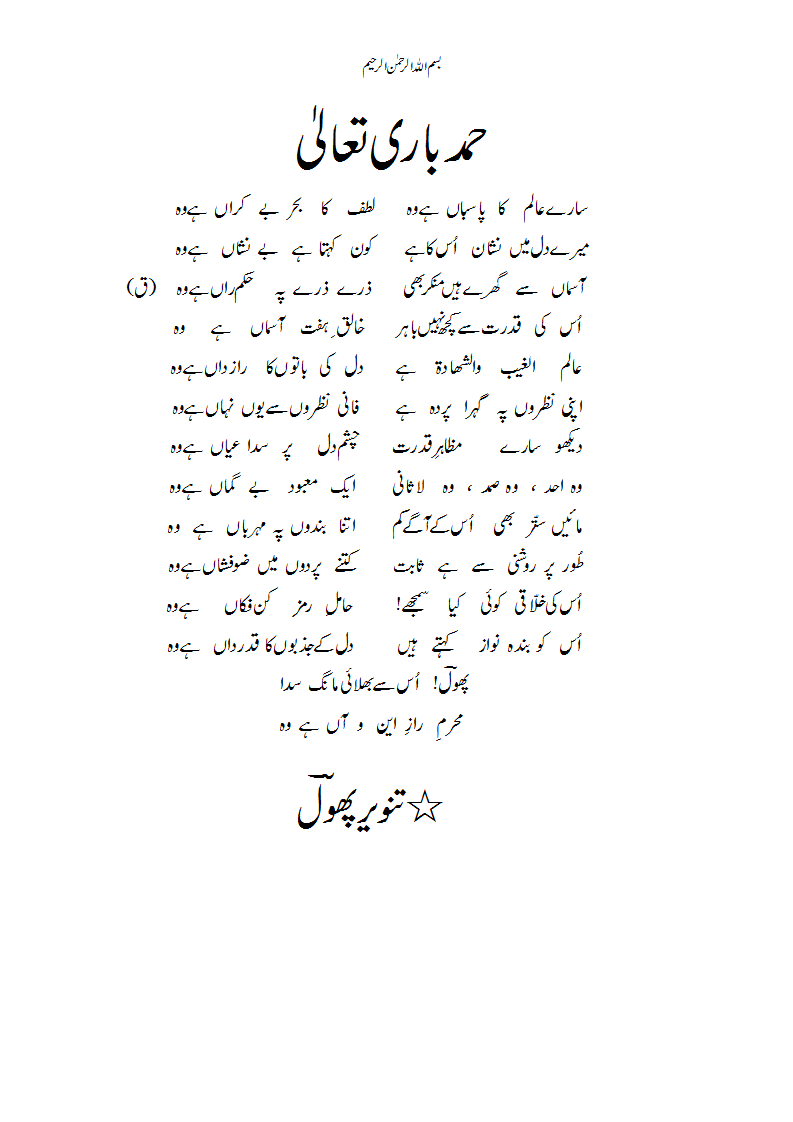 بسم اللہ الرحمٰن الرحیم
حمد باری تعالیٰ
سارے عالم کا پاسباں ہے وہ لطف کا بحر بے کراں ہے وہ
میرے دل میں نشان اُس کا ہے کون کہتا ہے بے نشاں ہے وہ
آسماں سے گھرے ہیں منکر بھی ذرے ذرے پہ حکم راں ہے وہ (ق)
اُس کی قدرت سے کچھ نہیں باہر خالقِ ہفت آسماں ہے وہ
عالم الغیب والشھادۃ ہے دل کی باتوں کا رازداں ہے وہ
اپنی نظروں پہ گہرا پردہ ہے فانی نظروں سے یوں نہاں ہے وہ
دیکھو سارے مظاہرِ قدرت چشمِ دل پر سدا عیاں ہے وہ
وہ احد ، وہ صمد ، وہ لاثانی ایک معبود بے گماں ہے وہ
مائیں ستّر بھی اُس کے آگے کم اتنا بندوں پہ مہرباں ہے وہ
طُور پر روشنی سے ہے ثابت کتنے پردوں میں ضوفشاں ہے وہ
اُس کی خلّاقی کوئی کیا سمجھے! حاملِ رمز کن فکاں ہے وہ
اُس کو بندہ نواز کہتے ہیں دل کے جذبوں کا قدرداں ہے وہ
پھولؔ! اُس سے بھلائی مانگ سدا
محرمِ رازِ این و آں ہے وہ
☆ تنویر پھولؔ